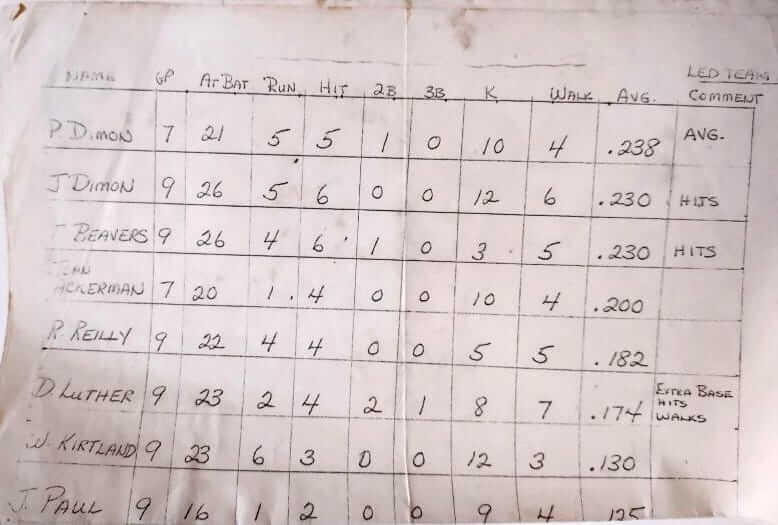 LED TEAM
NAME GP AT BAT RUN HIT 2B 3B K WALK AVG. COMMENT
P. DIMON 7 21 5 5 1 0 10 4 .238 AVG.
J. DIMON 9 26 5 6 0 0 12 6 .230 HITS
BEAVERS 9 26 4 6 1 0 3 5 .230 HITS
ACKERMAN 7 20 1 4 0 0 10 4 .200
R. REILLY 9 22 4 4 0 0 5 5 .182
D. LUTHER 9 23 2 4 2 1 8 7 .174 EXTRA BASE
HITS
WALKS
W. KIRTLAND 9 23 6 3 0 0 12 3 .130
J. PAUL 9 16 1 2 0 0 9 4 .125